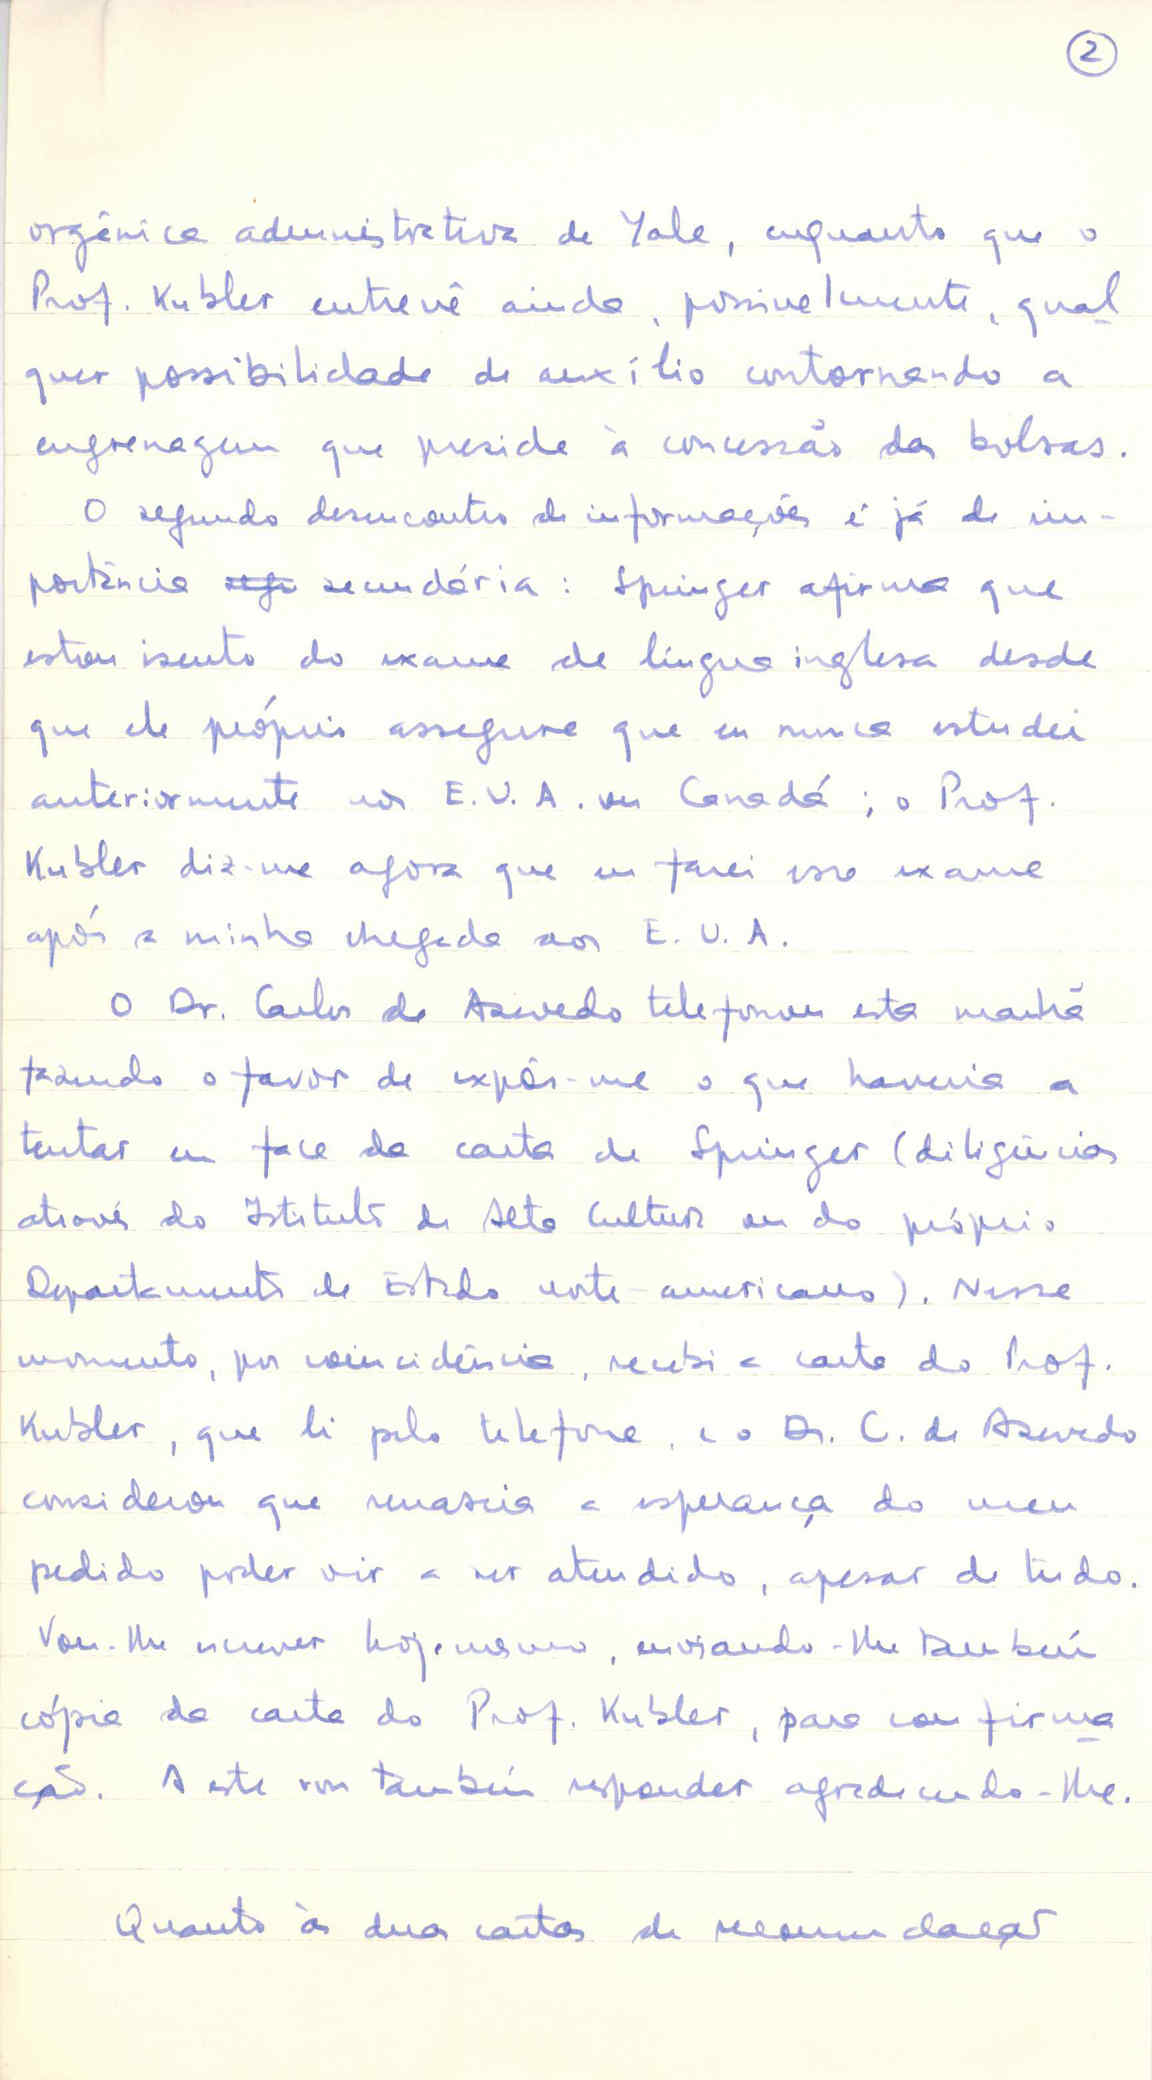 2
orgânica administrativa de Yale, enquanto que o
Prof. Kubler entrevê ainda, possivelmente, qual
quer possibilidade de auxílio contornando a
engrenagem que preside à concessão das bolsas.
O segundo desencontro de informações é já de im-
portância secundária: Springer afirma que
estou isento do exame de língua inglesa desde
que ele próprio assegure que eu nunca estudei
anteriormente nos E.U.A. ou Canadá; o Prof.
Kubler diz-me agora que eu farei esse exame
após a minha chegada aos E.U.A.
O Dr. Carlos de Azevedo telefonou esta manhã
fazendo o favor de expôr-me o que haveria a
tentar em face da carta de Springer (diligências
através do Istituto de Alta Cultura ou do próprio
Departamento de Estado norte-americano). Nesse
momento, por coincidência, recebi a carta do Prof.
Kubler, que li pelo telefone, e o Dr. C. de Azevedo
considerou que renascia a esperança do meu
pedido poder vir a ser atendido, apesar de tudo.
Vou-lhe escrever hoje mesmo, enviando-lhe também
cópia da carta do Prof. Kubler, para confirma
ção. A este vou também responder agradecendo-lhe.
Quanto às duas cartas de recomendação